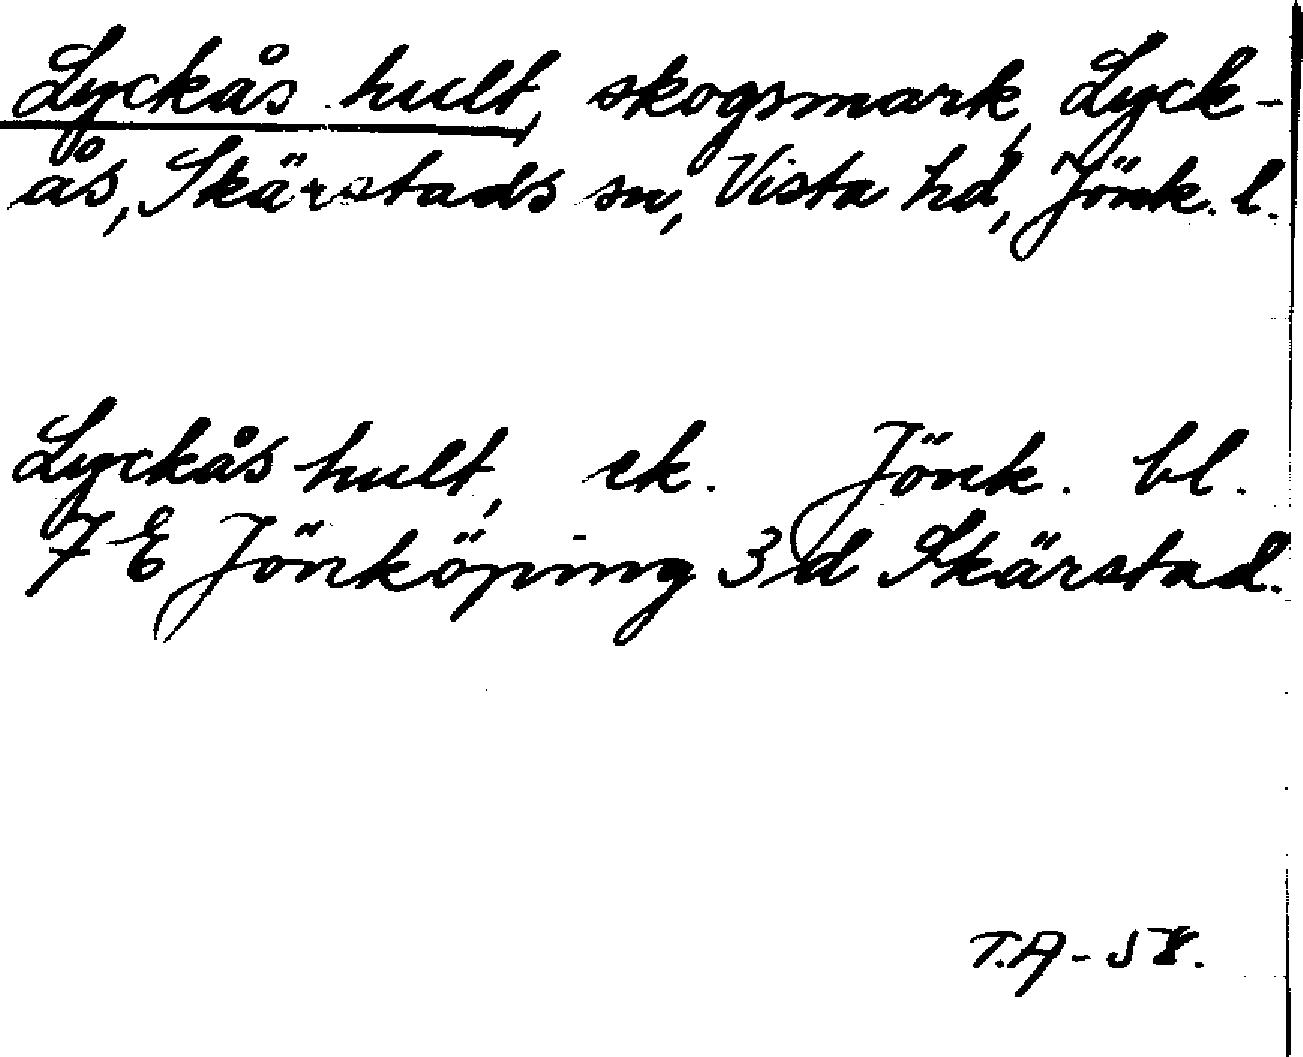 Lyckås hult, skogsmark, Lyck-
ås, Skärstads sn, Vista hd, Jönk. l.
Lyckås hult, ek. Jönk. bl.
7 E Jönköping 3 d Skärstad.
T.A-58.